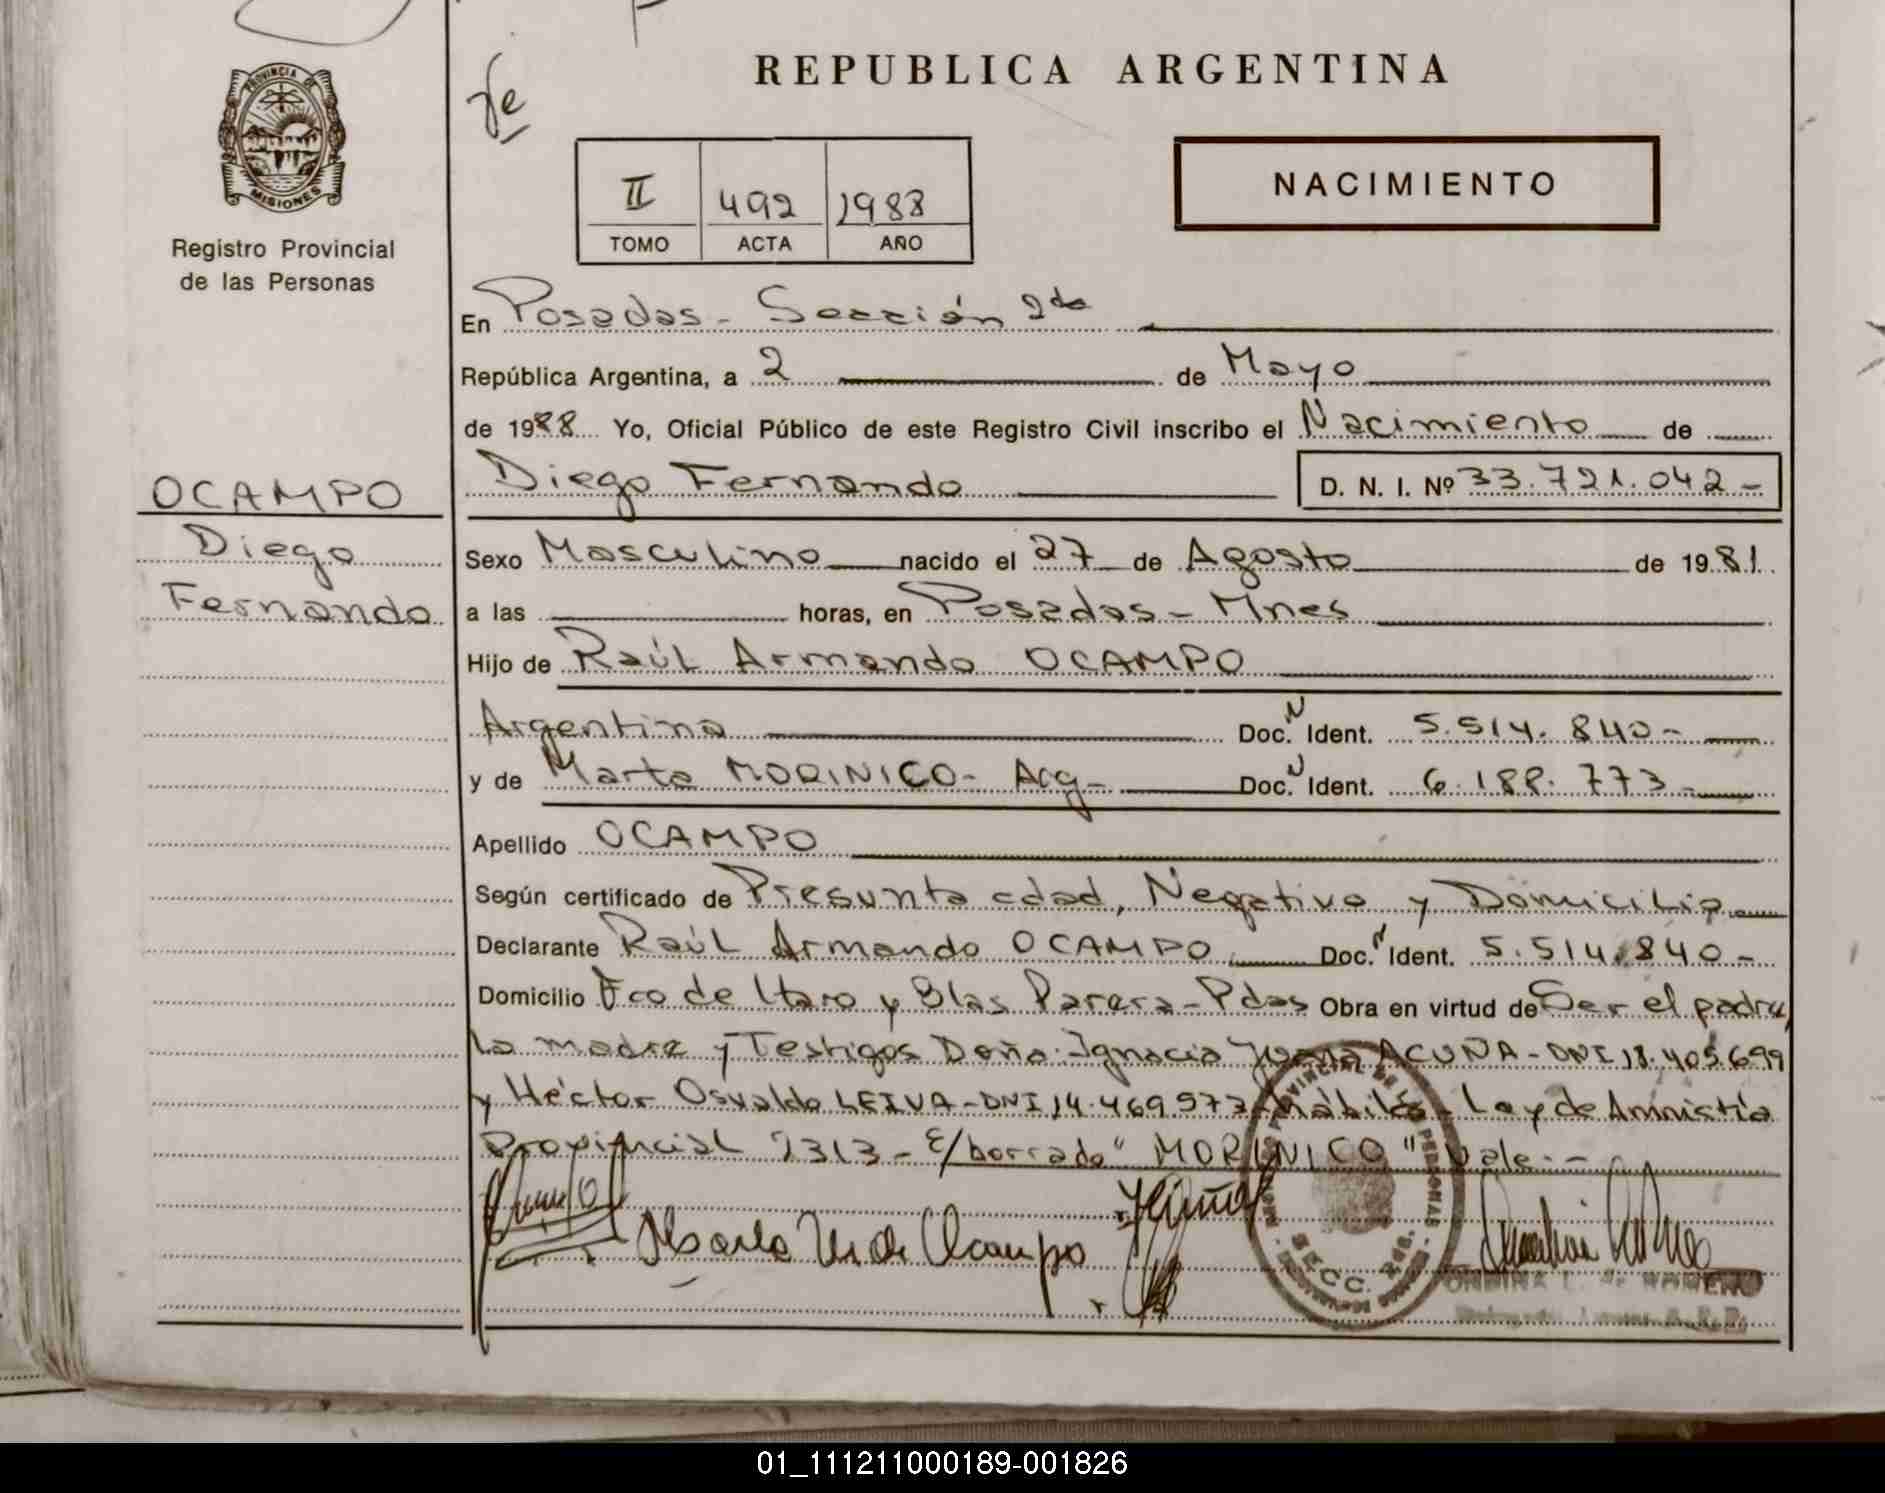 REPUBLICA ARGENTINA
PROVINCIA DE
MISIONES
Registro Provincial
de las Personas
II 492 1988
TOMO ACTA AÑO
NACIMIENTO
En Posadas - Sección 2da
República Argentina, a 2 de Mayo
de 1988 Yo, Oficial Público de este Registro Civil inscribo el Nacimiento de
OCAMPO
Diego
Fernando
Diego Fernando D. N. I. Nº 33.721.042-
Sexo Masculino nacido el 27 de Agosto de 1981
a las horas, en Posadas - Mnes
Hijo de Raúl Armando OCAMPO
Argentino Doc. N Ident. 5.514.840-
y de Marta MORINICO- Arg- Doc. Ident. 6.188.773-
Apellido OCAMPO
Según certificado de Presunta edad, Negativo y Domicilio
Declarante Raúl Armando OCAMPO Doc. N Ident. 5.514.840-
Domicilio Fco de Haro y Blas Parera - Pdas Obra en virtud de Ser el padre,
la madre y Testigos Doña: Ignacia Juana ACUÑA - DNI 18.405.699
y Héctor Osvaldo LEIVA - DNI 14.469.973 - hábiles - Ley de Amnistía
Provincial 2313 - E/borrado "MORINICO" Vale.-
Marta M de Ocampo
SECC. 2da.
ROMERO
01_111211000189-001826